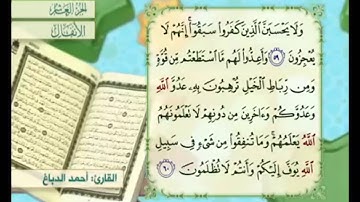 الجزء العاشر
الأنفال
وَلَا يَحْسَبَنَّ الَّذِينَ كَفَرُوا سَبَقُوا إِنَّهُمْ لَا
يُعْجِزُونَ ٥٩ وَأَعِدُّوا لَهُم مَّا اسْتَطَعْتُم مِّن قُوَّةٍ
وَمِن رِّبَاطِ الْخَيْلِ تُرْهِبُونَ بِهِ عَدُوَّ اللَّهِ
وَعَدُوَّكُمْ وَءَاخَرِينَ مِن دُونِهِمْ لَا تَعْلَمُونَهُمُ
اللَّهُ يَعْلَمُهُمْ وَمَا تُنفِقُوا مِن شَيْءٍ فِي سَبِيلِ
اللَّهِ يُوَفَّ إِلَيْكُمْ وَأَنتُمْ لَا تُظْلَمُونَ ٦٠
القارئ: أحمد الدباغ